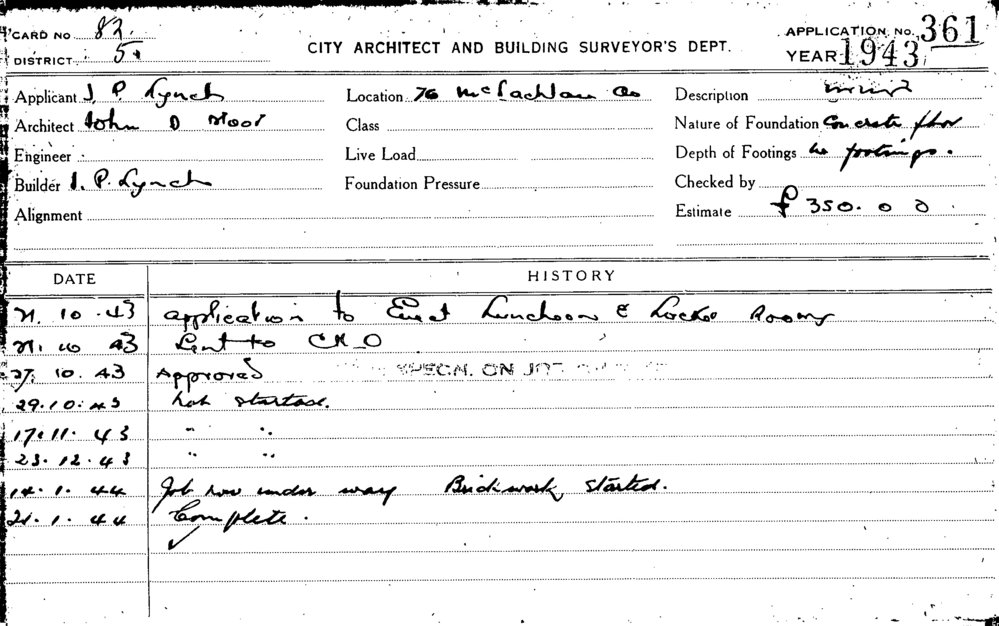 CARD NO 82.
DISTRICT 5
CITY ARCHITECT AND BUILDING SURVEYOR'S DEPT.
APPLICATION No. 361
YEAR 1943
Applicant J. P. Lynch
Location 76 McLachlan
Description
Architect John D Moor
Class
Nature of Foundation Concrete floor
Engineer
Live Load
Depth of Footings no footings.
Builder J. P. Lynch
Foundation Pressure
Checked by
Alignment
Estimate £ 350. 0 0
DATE HISTORY
21. 10. 43 application to Erect Luncheon & Locker Rooms
21. 10 43 Sent to
27. 10. 43 Approved ON JOB
29. 10. 43 not started.
17. 11. 43 " "
23. 12. 43 " "
14. 1. 44 Job now under way Brickwork started.
21. 1. 44 Complete.